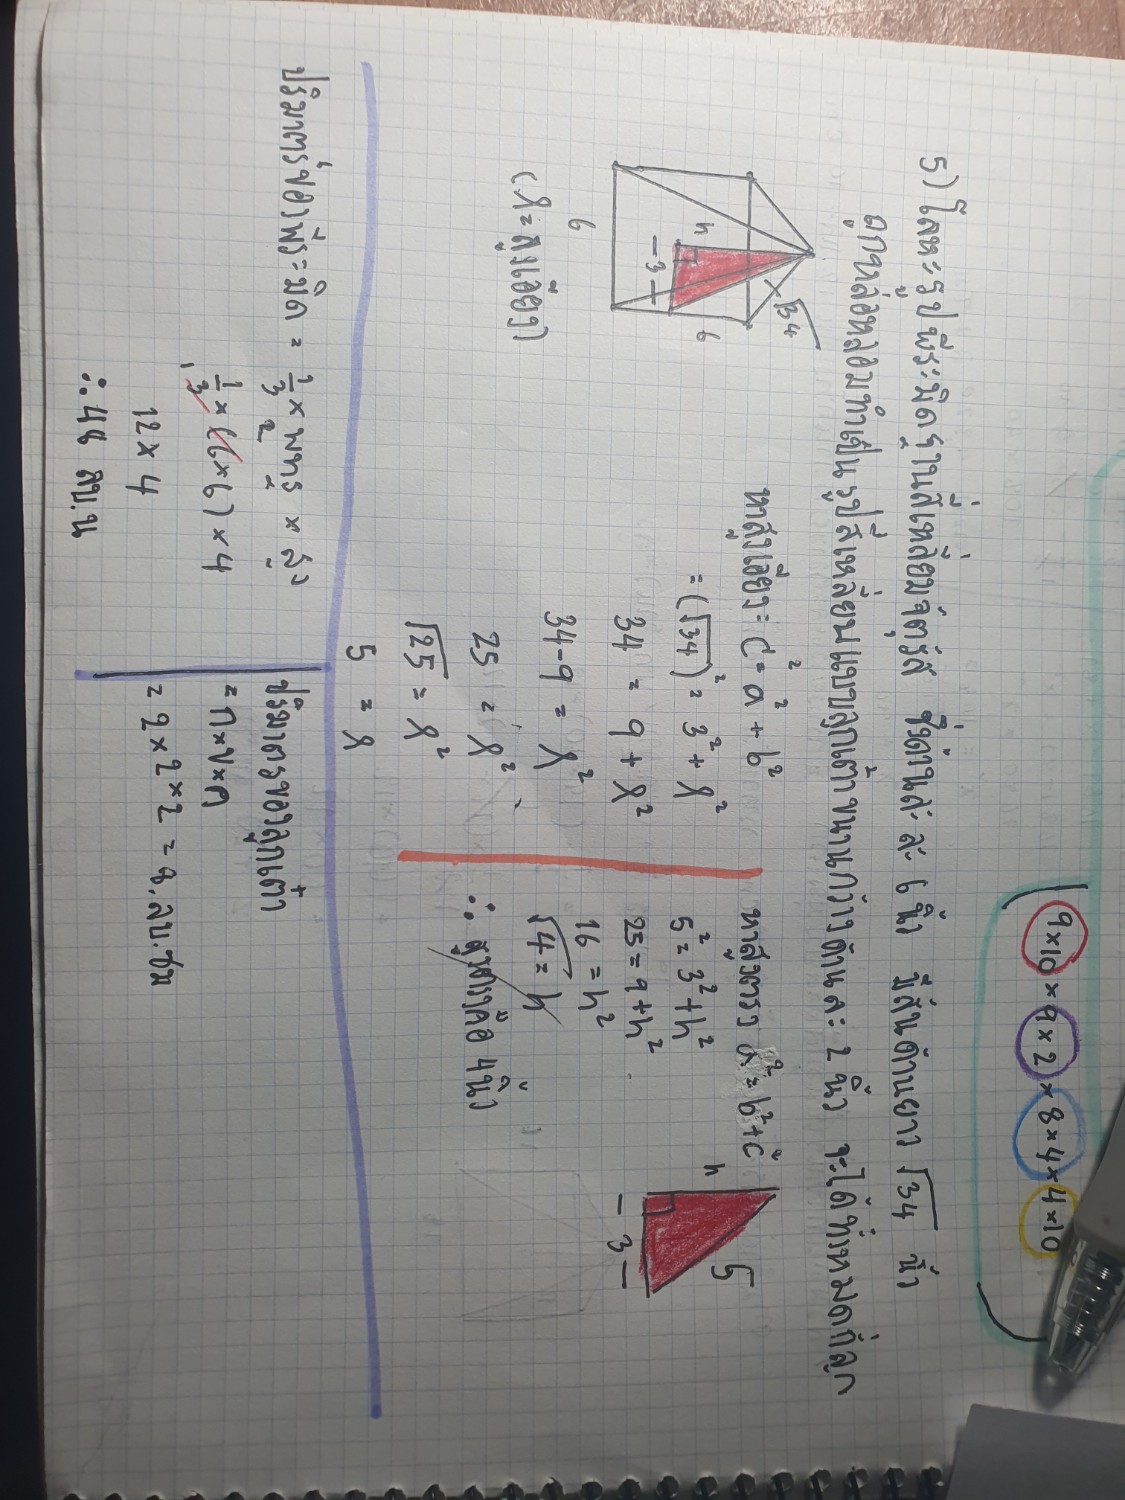 9×10 × 9×2 × 8×4×4×10
5) โลหะรูปพีระมิดฐานสี่เหลี่ยมจัตุรัส ซึ่งด้านละ 6 นิ้ว มีสันด้านยาว √34 นิ้ว
ถูกหล่อหลอมทำเป็นรูปสี่เหลี่ยมแบบลูกเต๋าขนานกว้างด้านละ 2 นิ้ว จะได้ทั้งหมดกี่ลูก
√34
h
–3–
6
6
(l = สูงเอียง)
หาสูงเอียง = c² = a² + b²
= (√34)² = 3² + l²
34 = 9 + l²
34-9 = l²
25 = l²
√25 = l²
5 = l
หาสูงตรง l² = b² + c²
5² = 3² + h²
25 = 9 + h²
16 = h²
√4 = h
∴ สูงตรงคือ 4 นิ้ว
h
5
– 3 –
ปริมาตรของพีระมิด = 1/3 × พทฐ × สูง
1/3 × (6×6) × 4
2
1
12 × 4
∴ 48 ลบ.น
ปริมาตรของลูกเต๋า
= ก×ย×ส
= 2×2×2 = 8.ลบ.ซม